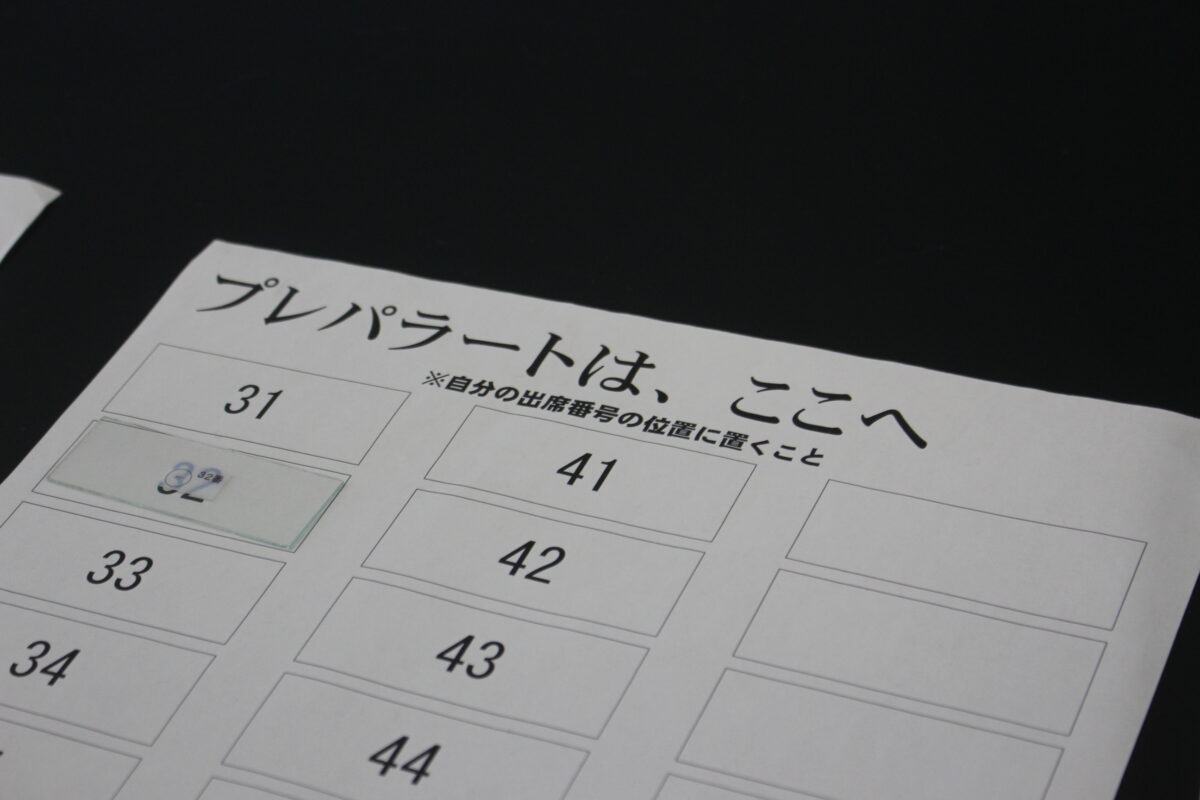 プレパラートは、ここへ
※自分の出席番号の位置に置くこと
31
41
32
32番
42
33
43
34
44